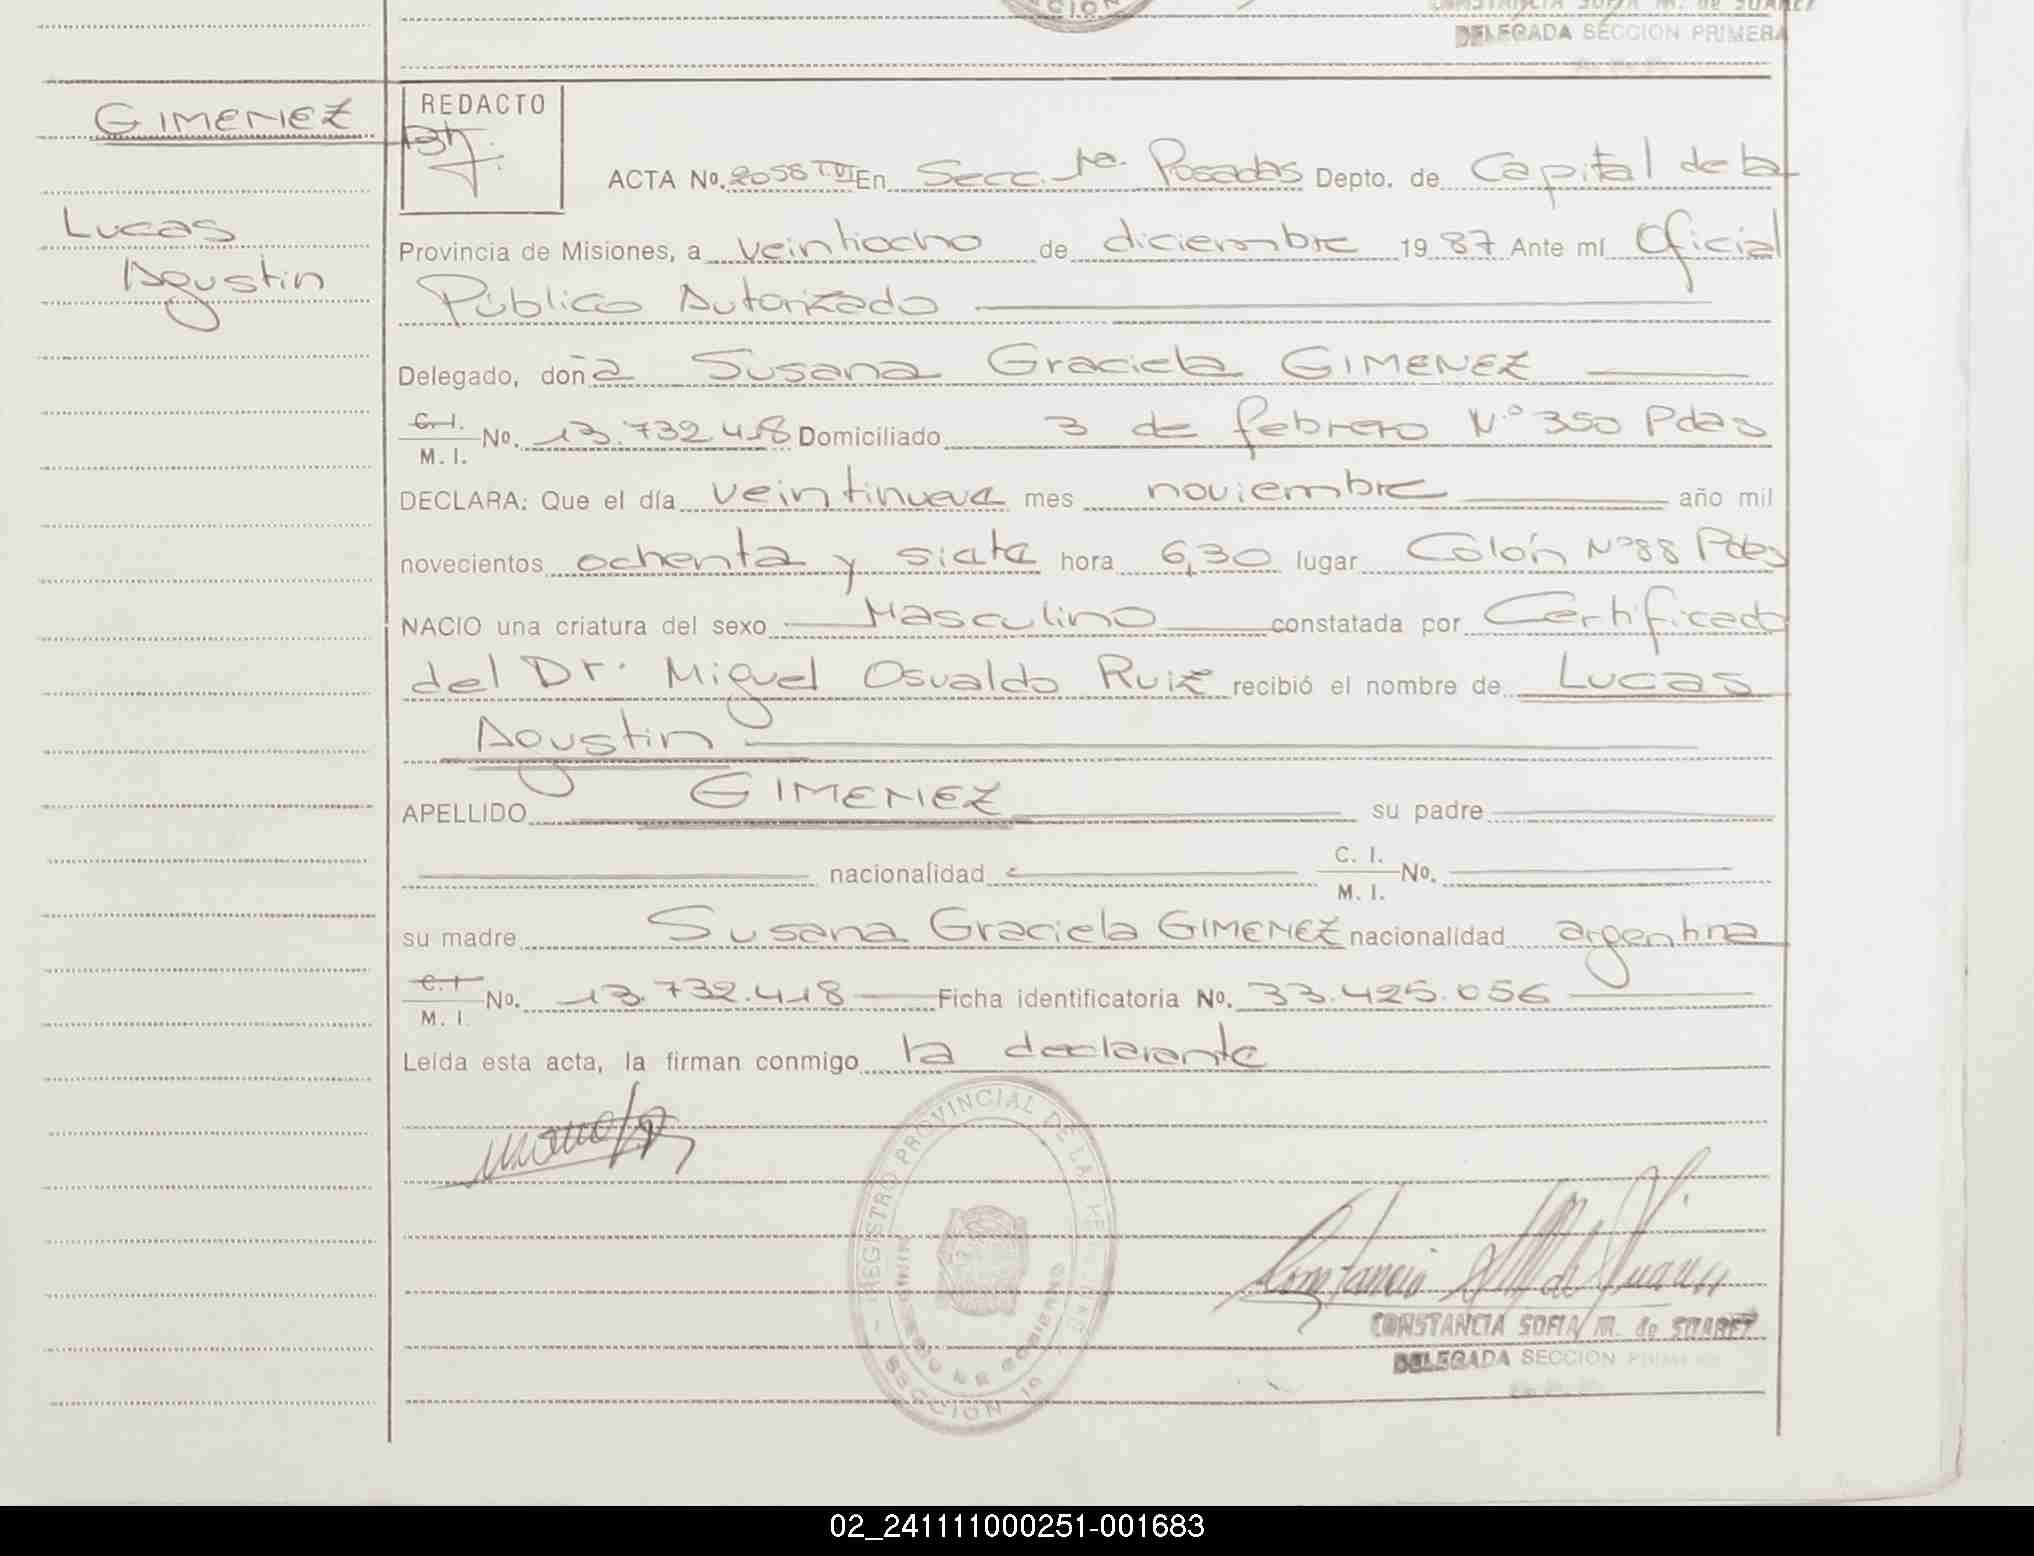 CION
CONSTANCIA SOFIA M. de SUAREZ
DELEGADA SECCION PRIMERA
GIMENEZ
Lucas
Agustin
REDACTO
ACTA No. 2058 T.VI En Secc. 1ra. Posadas Depto. de Capital de la
Provincia de Misiones, a veintiocho de diciembre 1987 Ante mí Oficial
Público Autorizado
Delegado, doña Susana Graciela GIMENEZ
C. I.
M. I. No. 13.732.418 Domiciliado 3 de febrero N° 350 Pdas
DECLARA: Que el día veintinueve mes noviembre año mil
novecientos ochenta y siete hora 6,30 lugar Colón N°88 Pdas
NACIO una criatura del sexo Masculino constatada por Certificado
del Dr. Miguel Osvaldo Ruiz recibió el nombre de Lucas
Agustin
APELLIDO GIMENEZ su padre
nacionalidad C. I.
M. I. No.
su madre Susana Graciela GIMENEZ nacionalidad argentina
C. I
M. I. No. 13.732.418 Ficha identificatoria No. 33.425.056
Leída esta acta, la firman conmigo la declarante
REGISTRO PROVINCIAL DE LAS PERSONAS
SECCION 1a
CONSTANCIA SOFIA M. de SUAREZ
DELEGADA SECCION PRIMERA
02_241111000251-001683